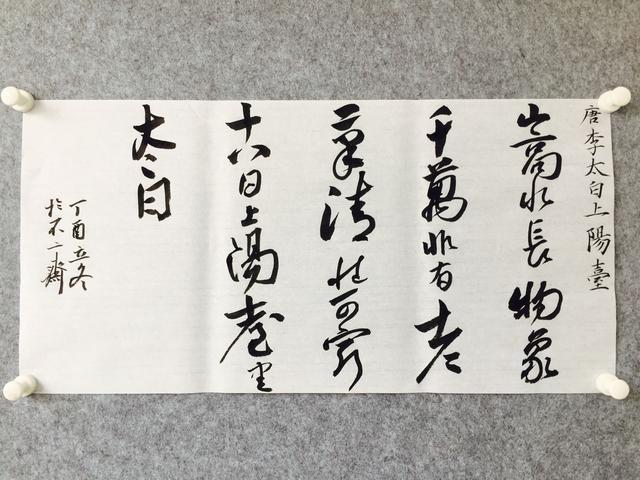 唐李太白上陽臺
山高水長物象
千萬非有老
筆清壯可窮
十八日上陽臺書
太白
丁酉立冬
於不二齋